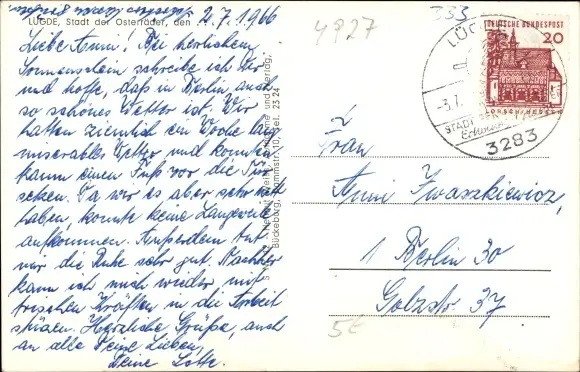 LÜGDE, Stadt der Osterräder, den 2.7.1966
Liebe Anni! Bei herrlichem
Sonnenschein schreibe ich Dir
und hoffe, daß in Berlin auch
so schönes Wetter ist. Wir
hatten ziemlich ein Woche lang
miserables Wetter und konnten
kaum einen Fuß vor die Tür
setzen. Da wir es aber sehr nett
haben, konnte keine Langeweile
aufkommen. Außerdem tut
mir die Ruhe sehr gut. Nachher
kann ich mich wieder mit
frischen Kräften in die Arbeit
stürzen. Herzliche Grüße, auch
an alle Deine Lieben,
Deine Lotte.
Bückeburg, Trammstr. 10, Tel. 23 24
4927
333
DEUTSCHE BUNDESPOST
20
LORSCH/HESSEN
LÜGDE
-3.7.
STADT DER
3283
Frau
Anni Iwaszkiewicz,
1 Berlin 30
Golzstr. 37
5E